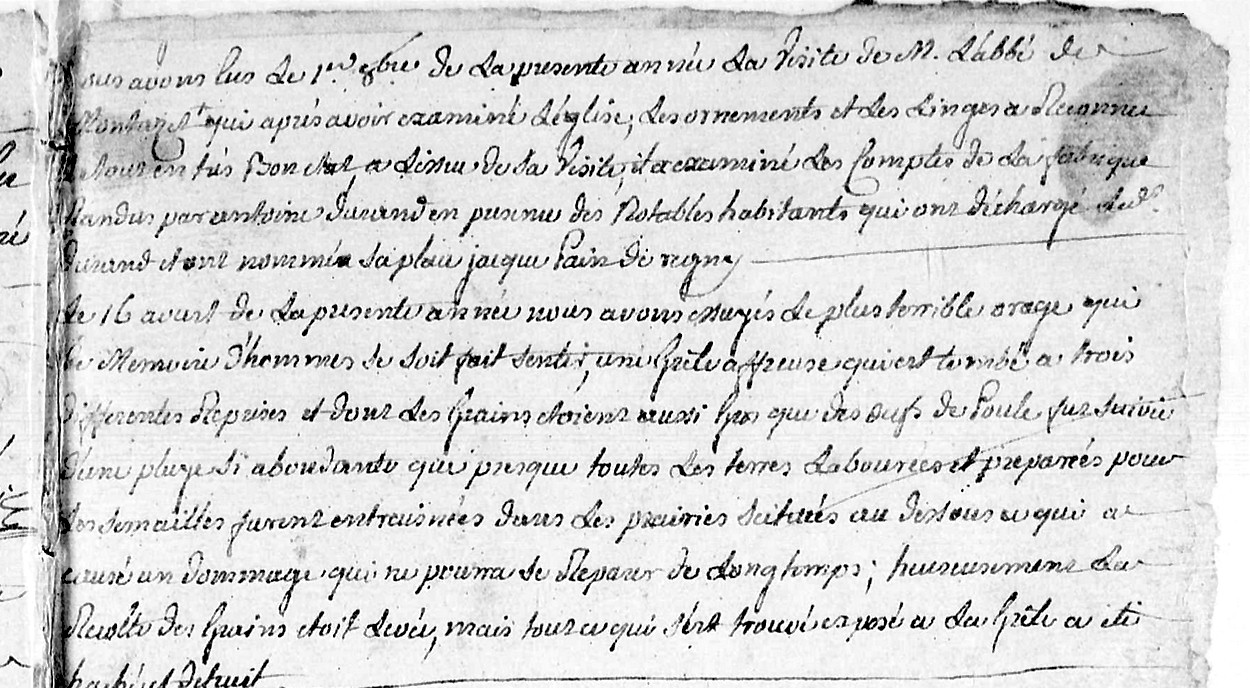 nous avons eus le 1er 8bre de la presente année la Visite de M. L'abbé de
Montazet qui aprés avoir examiné L'église, les ornements et les Linges a Reconnu
le tout en trés Bon etat, a L'issue de la Visite, il a examiné les Comptes de la fabrique
Randus par antoine durand en presence des Notables habitants qui ont déchargé led.
durand et ont nommés a sa place jacque Pain de regny
Le 16 aoust de la presente année nous avons essuyés le plus terrible orage qui
de Memoire d'hommes se soit fait sentir, une Grêle affreuse qui est tombé a trois
differentes Reprises et dont les Grains etoient aussi Gros que des oeufs de Poule fut suivie
d'une pluye si abondante que presque toutes les terres labourées et preparées pour
les semailles furent entraisnées dans les prairies scituées au dessous ce qui a
causé un dommage qui ne pourra se Reparer de Longtemps; heureusement la
Recolte des Grains etoit Levée, mais tout ce qui s'est trouvé exposé a la Grêle a eté
haché et detruit